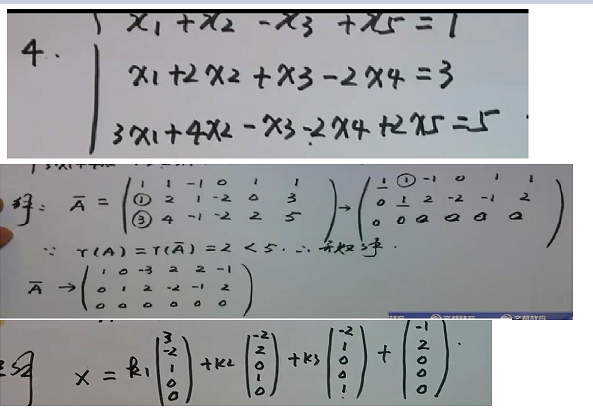 x1 + x2 - x3 + x5 = 1
4. x1 + 2x2 + x3 - 2x4 = 3
3x1 + 4x2 - x3 - 2x4 + 2x5 = 5
解: Ā = ( 1 1 -1 0 1 1 → ( 1 1 -1 0 1 1
1 2 1 -2 0 3 0 1 2 -2 -1 2
3 4 -1 -2 2 5 ) 0 0 0 0 0 0 )
∵ r(A) = r(Ā) = 2 < 5 ∴ 无穷解.
Ā → ( 1 0 -3 2 2 -1
0 1 2 -2 -1 2
0 0 0 0 0 0 )
x = k1 ( 3 -2 1 0 0 ) + k2 ( -2 2 0 1 0 ) + k3 ( -2 1 0 0 1 ) + ( -1 2 0 0 0 ).